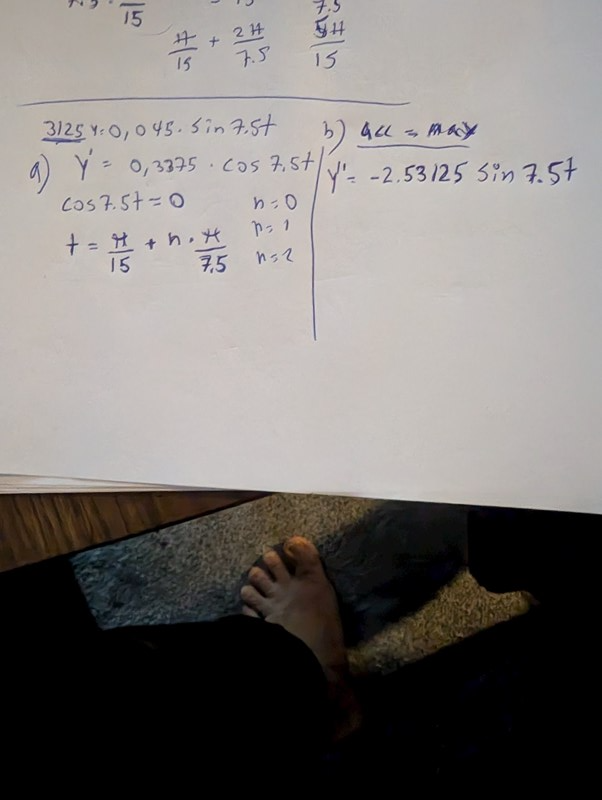 15
7.5
π/15 + 2π/7.5 5π/15
3125 y=0,045·sin7.5t
a) y' = 0,3375 · cos 7,5t
cos7.5t=0 n=0
n=1
t = π/15 + n · π/7.5
n=2
b) acc = max
y'' = -2.53125 sin 7.5t